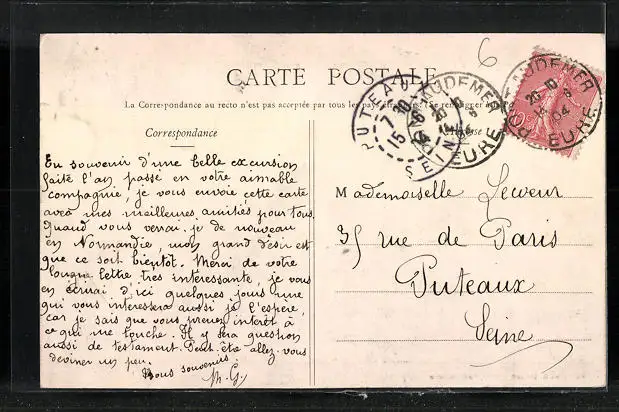 6
CARTE POSTALE
La Correspondance au recto n'est pas acceptée par tous les pays étrangers (Se renseigner
Correspondance
En souvenir d'une belle excursion
faite l'an passé en votre aimable
compagnie, je vous envoie cette carte
avec mes meilleures amitiés pour tous.
Quand vous verrai-je de nouveau
en Normandie, mon grand désir est
que ce soit bientôt. Merci de votre
longue lettre très intéressante, je vous
en écrirai d'ici quelques jours une
qui vous intéressera aussi je l'espère,
car je sais que vous prenez intérêt à
ce qui me touche. Il y sera question
aussi de testament. Peut-être allez-vous
deviner un peu.
Bons souvenirs
M. G.
Mademoiselle Lecoeur
35 rue de Paris
Puteaux
Seine
PUTEAUX
7 30
15 -8
SEINE
AUDEMER
EURE
PONT-AUDEMER
20 10
14 8
04
EURE